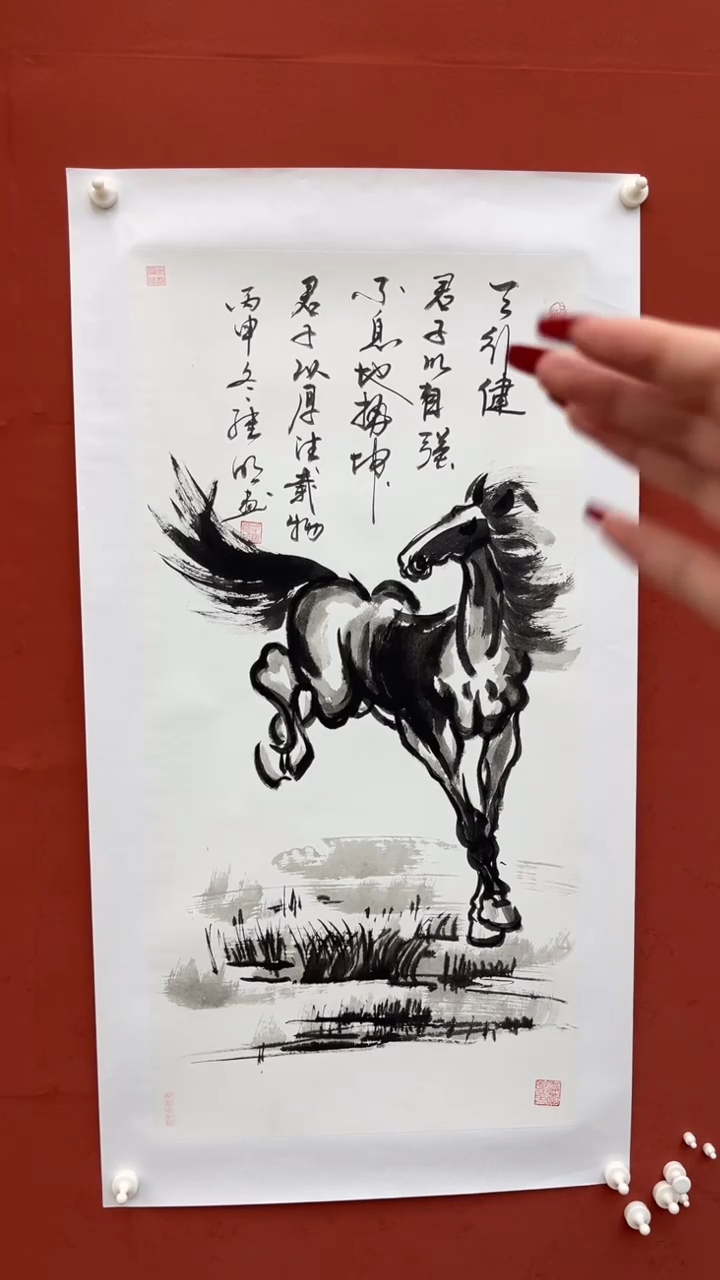 天行健
君子以自强
不息地势坤
君子以厚德载物
丙申冬 明画